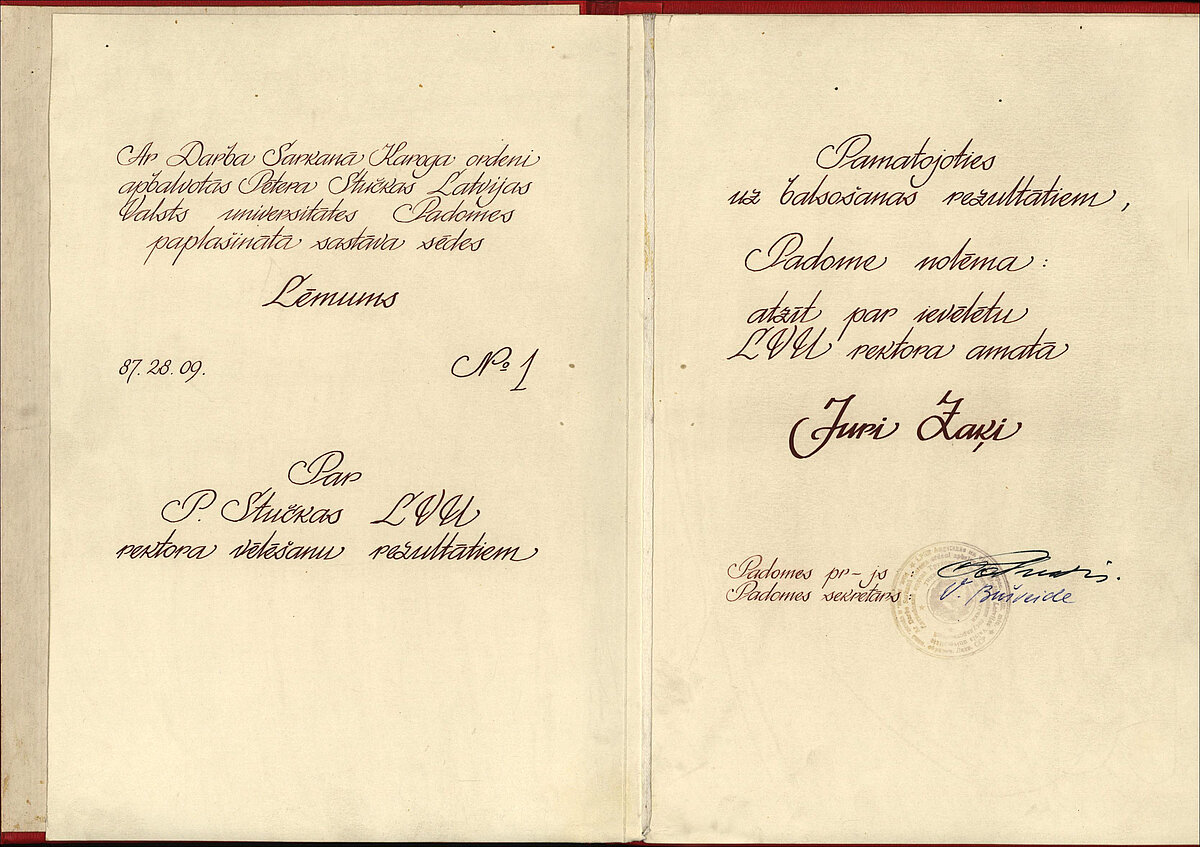 Ar Darba Sarkanā Karoga ordeni
apbalvotās Pētera Stučkas Latvijas
Valsts universitātes Padomes
paplašinātā sastāva sēdes
Lēmums
87. 28. 09. № 1
Par
P. Stučkas LVU
rektora vēlēšanu rezultātiem
Pamatojoties
uz balsošanas rezultātiem,
Padome nolēma:
atzīt par ievēlētu
LVU rektora amatā
Juri Zaķi
Padomes pr-js :
Padomes sekretārs :